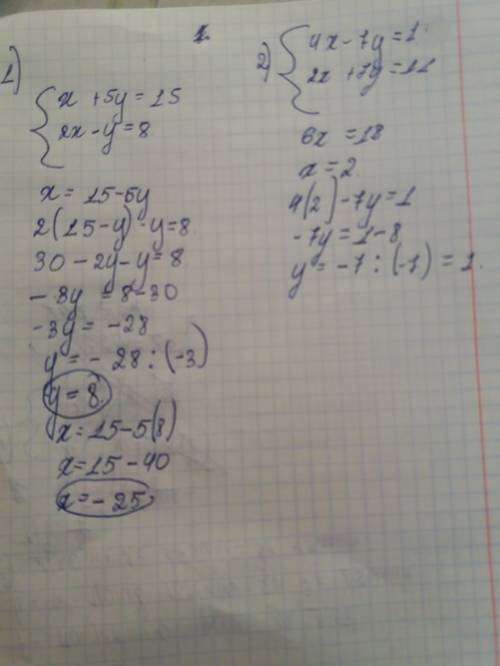 1.
1)
x + 5y = 15
2x - y = 8
x = 15 - 5y
2(15 - y) - y = 8
30 - 2y - y = 8
- 3y = 8 - 30
-3y = -28
y = - 28 : (-3)
y = 8
x = 15 - 5(8)
x = 15 - 40
x = - 25
2)
4x - 7y = 1
2x + 7y = 11
6x = 18
x = 2
4(2) - 7y = 1
-7y = 1 - 8
y = -7 : (-7) = 1